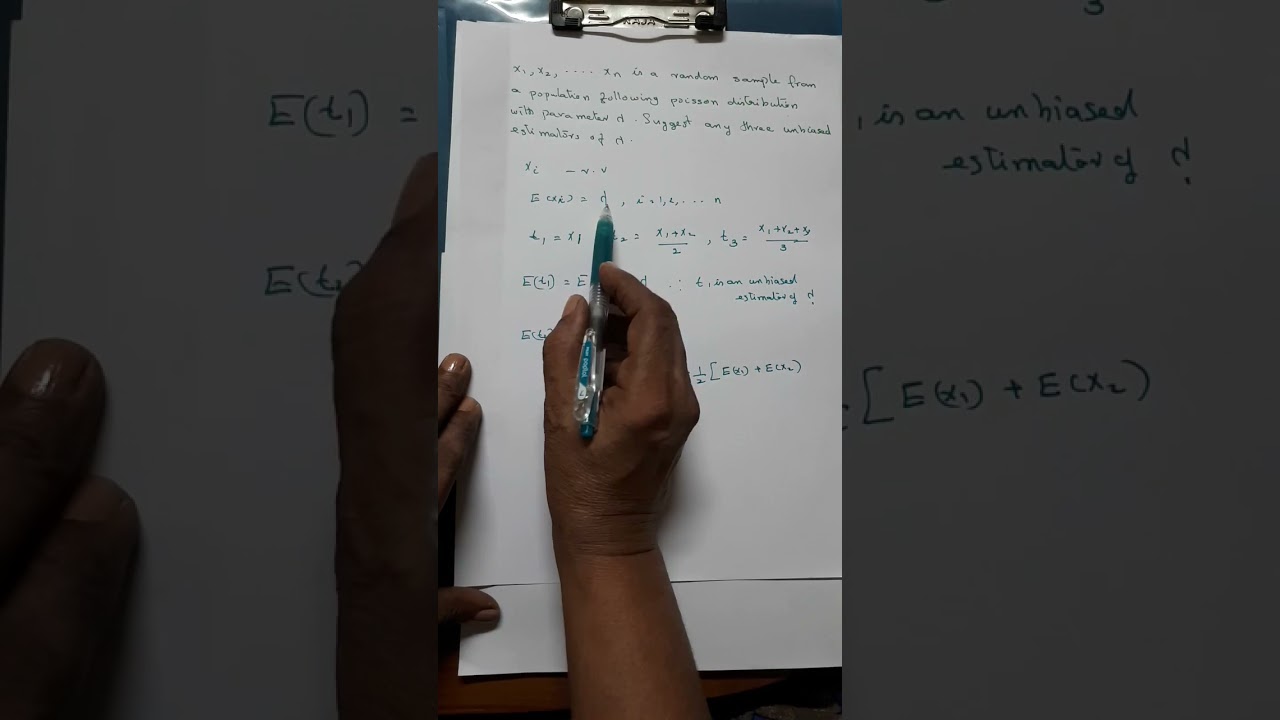 x1, x2, .... xn is a random sample from
a population following poisson distribution
with parameter λ. Suggest any three unbiased
estimators of λ.
xi - r.v
E(xi) = λ, i=1,2,... n
t1 = x1 t2 = x1+x2/2, t3 = x1+x2+x3/3
E(t1) = E λ ∴ t1 is an unbiased
estimator of λ
E(t2)
= 1/2 [E(x1) + E(x2)
3
E(t1) =
1 is an unbiased
estimator of λ
E(t2
[E(x1) + E(x2)